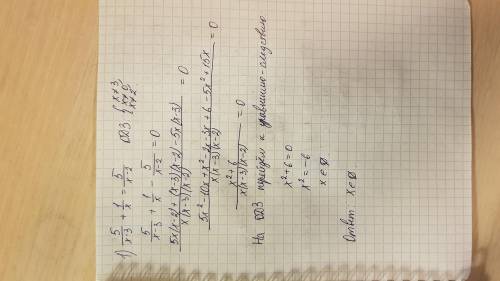 1) 5/(x-3) + 1/x = 5/(x-2) ОДЗ { x≠3 x≠0 x≠2
5/(x-3) + 1/x - 5/(x-2) = 0
(5x(x-2) + (x-3)(x-2) - 5x(x-3))/(x(x-3)(x-2)) = 0
(5x² - 10x + x² - 2x - 3x + 6 - 5x² + 15x)/(x(x-3)(x-2)) = 0
(x² + 6)/(x(x-3)(x-2)) = 0
На ОДЗ перейдём к уравнению-следствию
x² + 6 = 0
x² = -6
x ∈ ø
Ответ: x ∈ ø.